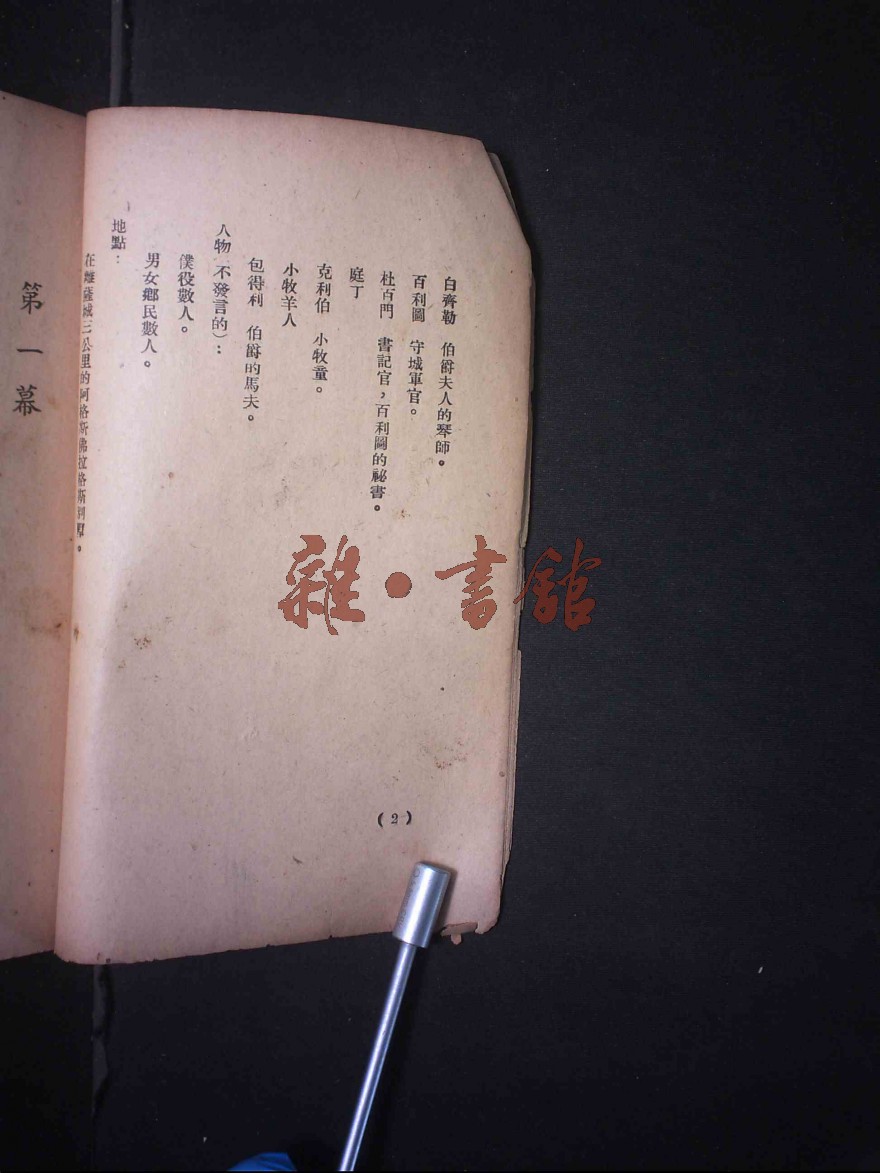 白齊勒　伯爵夫人的琴師。
百利圖　守城軍官。
杜百門　書記官，百利圖的祕書。
庭丁
克利伯　小牧童。
小牧羊人
包得利　伯爵的馬夫。
人物（不發言的）：
僕役數人。
男女鄉民數人。
地點：
在離薩城三公里的阿格斯佛拉格斯別墅。
(2)
第一幕
雜·書館